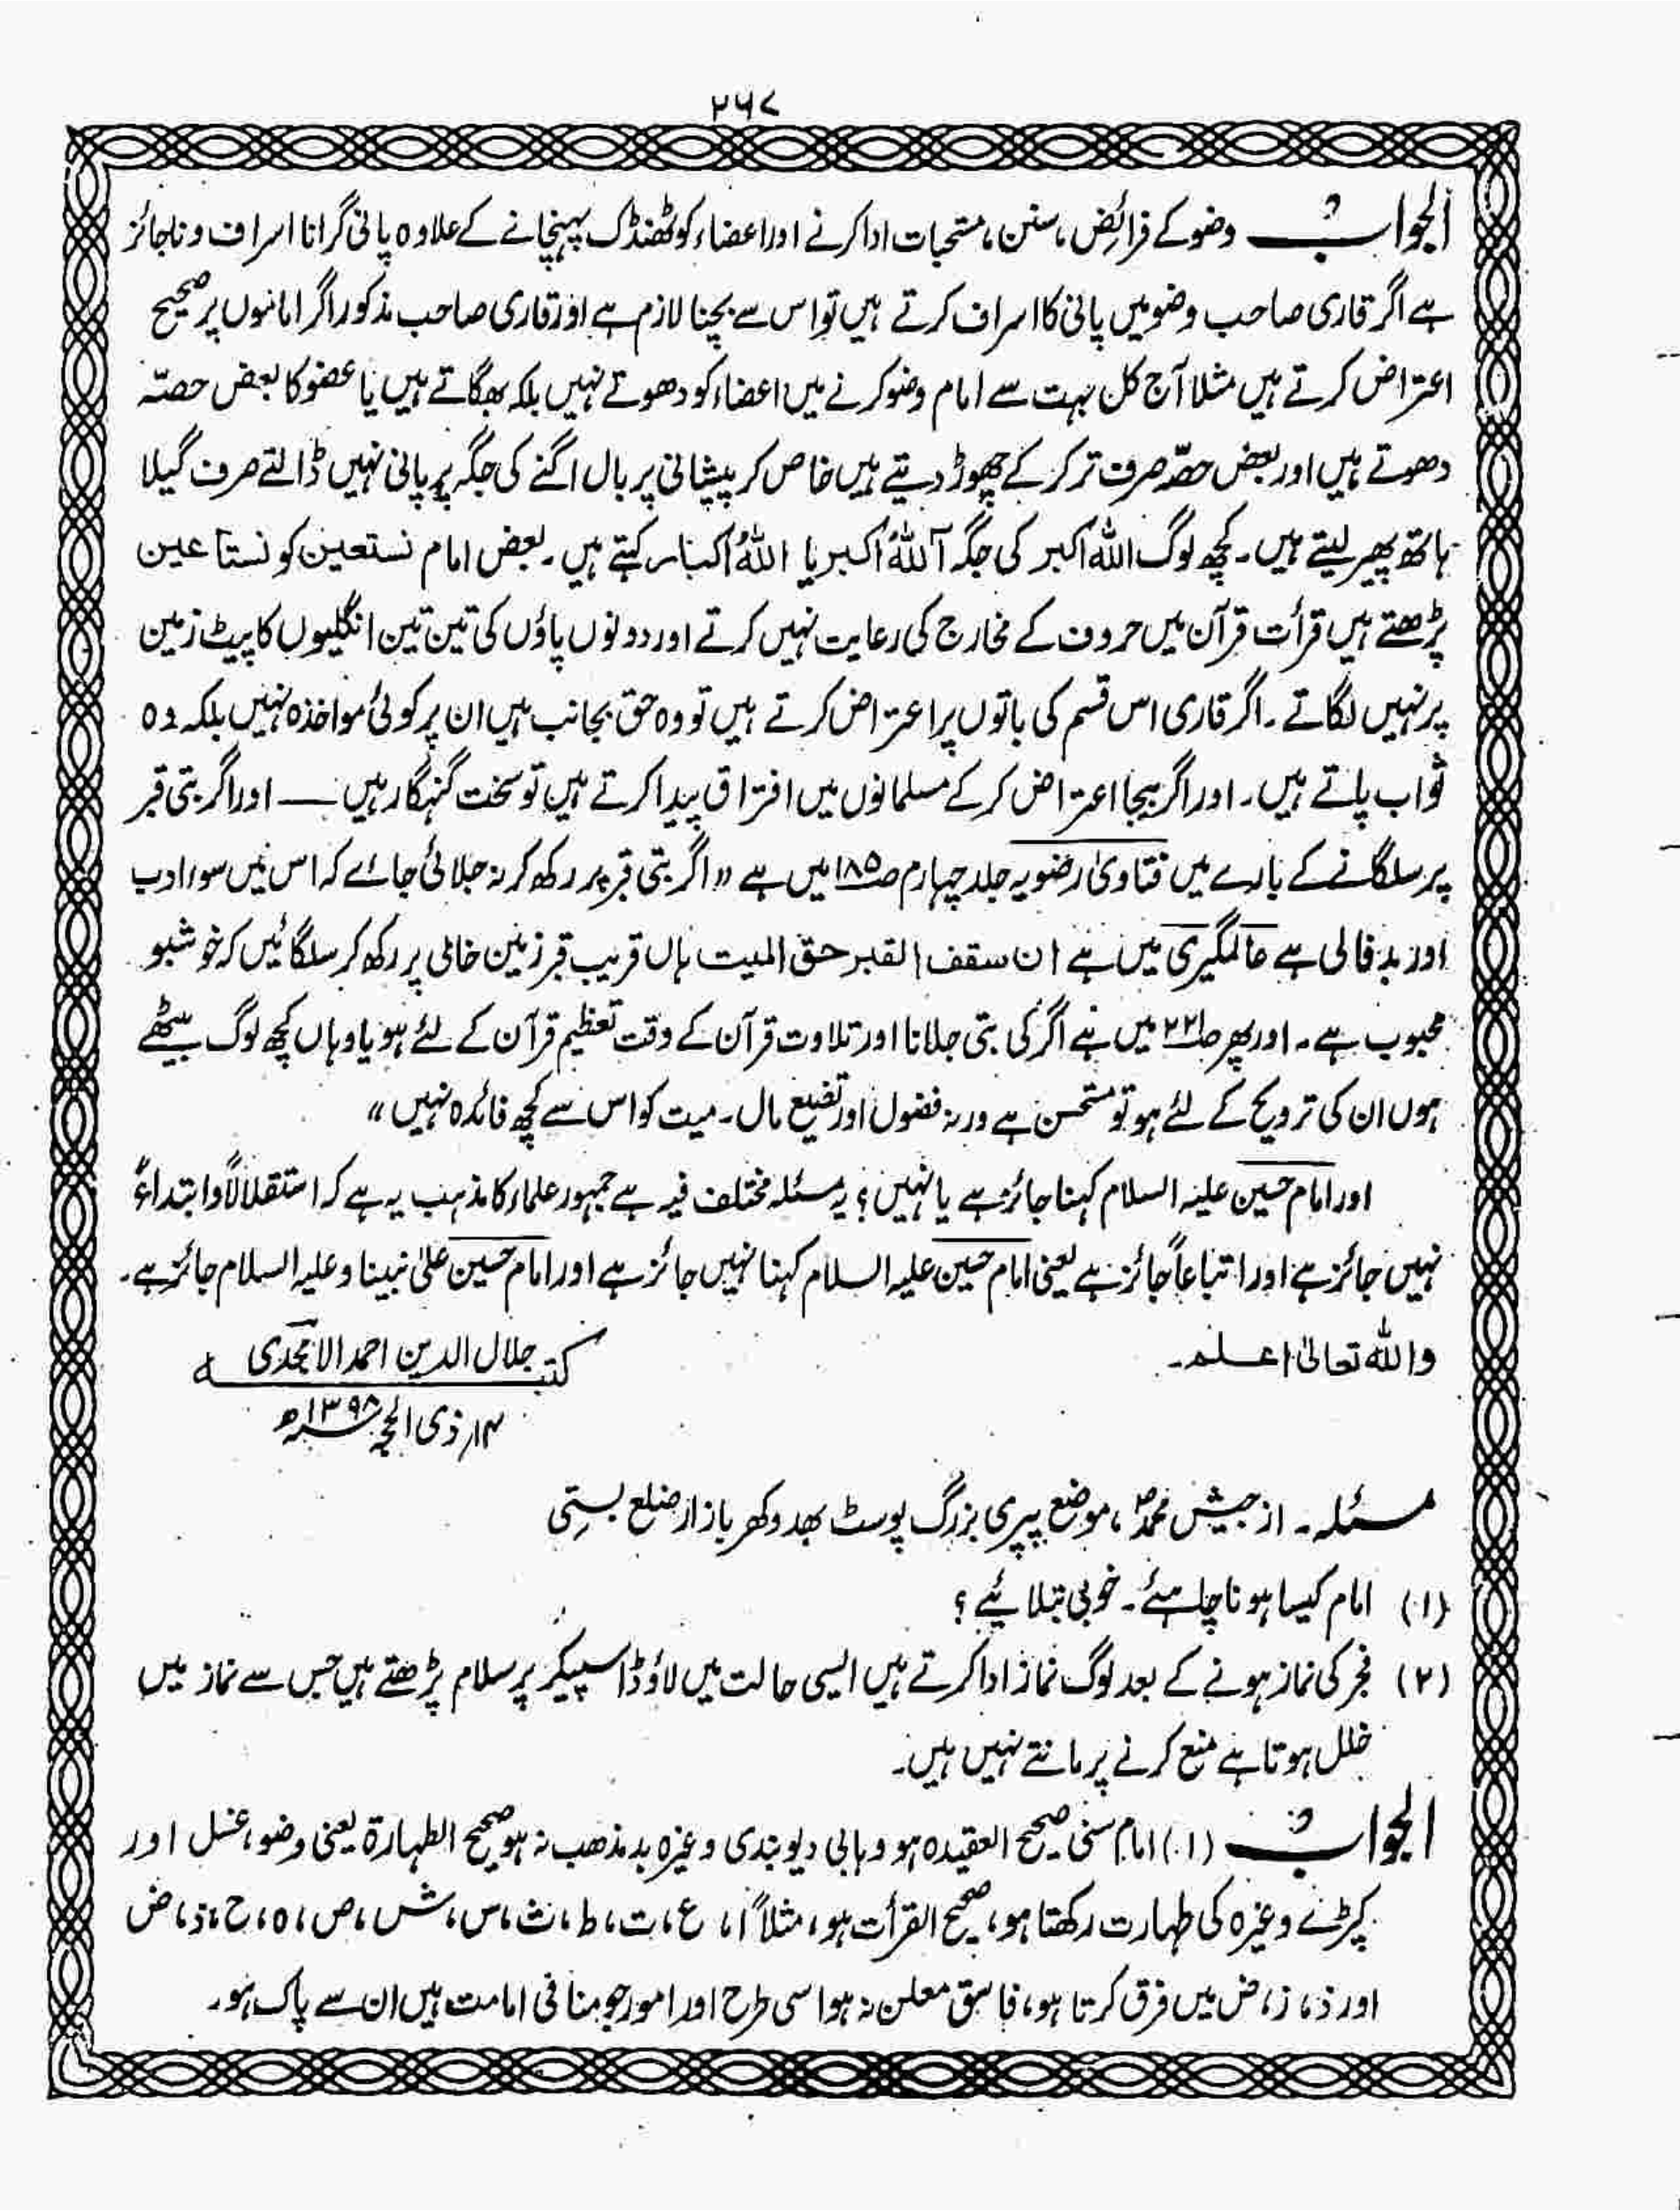 ۲۶۷
الجواب وضو کے فرائض، سنن، مستحبات ادا کرنے اور اعضاء کو ٹھنڈک پہنچانے کے علاوہ پانی گرانا اسراف و ناجائز
ہے اگر قاری صاحب وضو میں پانی کا اسراف کرتے ہیں تو اس سے بچنا لازم ہے اور قاری صاحب مذکور اگر اماموں پر صحیح
اعتراض کرتے ہیں مثلا آج کل بہت سے امام وضو کرنے میں اعضاء کو دھوتے نہیں بلکہ بھگاتے ہیں یا عضو کا بعض حصّہ
دھوتے ہیں اور بعض حصّہ صرف تر کر کے چھوڑ دیتے ہیں خاص کر پیشانی پر بال اگنے کی جگہ پر پانی نہیں ڈالتے صرف گیلا
ہاتھ پھیر لیتے ہیں۔ کچھ لوگ اللہ اکبر کی جگہ آللہُ اکبر یا اللہُ اکبار کہتے ہیں۔ بعض امام نستعین کو نستاعین
پڑھتے ہیں قرأت قرآن میں حروف کے مخارج کی رعایت نہیں کرتے اور دونوں پاؤں کی تین تین انگلیوں کا پیٹ زمین
پر نہیں لگاتے۔ اگر قاری اس قسم کی باتوں پر اعتراض کرتے ہیں تو وہ حق بجانب ہیں ان پر کوئی مواخذہ نہیں بلکہ وہ
ثواب پاتے ہیں۔ اور اگر بیجا اعتراض کر کے مسلمانوں میں افتراق پیدا کرتے ہیں تو سخت گنہگار ہیں ــــ اور اگر بتی قبر
پر سلگانے کے بارے میں فتاویٰ رضویہ جلد چہارم ص۱۸۵ میں ہے «اگر بتی قبر پر رکھ کر نہ جلائی جائے کہ اس میں سوءادب
اور بدفالی ہے عالمگیری میں ہے ان سقف القبر حق المیت ہاں قریب قبر زمین خالی پر رکھ کر سلگائیں کہ خوشبو
محبوب ہے۔ اور پھر ص۲۲۱ میں ہے اگر کی بتی جلانا اور تلاوت قرآن کے وقت تعظیم قرآن کے لئے ہو یا وہاں کچھ لوگ بیٹھے
ہوں ان کی ترویح کے لئے ہو تو مستحسن ہے ورنہ فضول اور تضیع مال۔ میت کو اس سے کچھ فائدہ نہیں»
اور امام حسین علیہ السلام کہنا جائز ہے یا نہیں؟ یہ مسئلہ مختلف فیہ ہے جمہور علماء کا مذہب یہ ہے کہ استقلالاً وابتداءً
نہیں جائز ہے اور اتباعاً جائز ہے یعنی امام حسین علیہ السلام کہنا نہیں جائز ہے اور امام حسین علیٰ نبینا و علیہ السلام جائز ہے۔
واللہ تعالیٰ اعلم۔
کتبہ جلال الدین احمد الامجدی
۱۴؍ ذی الحجہ ۱۳۹۸ھ
مسئلہ۔ از جیش محمد، موضع پیپری بزرگ پوسٹ بھدوکھر بازار ضلع بستی
(۱) امام کیسا ہونا چاہئے۔ خوبی بتلائیے؟
(۲) فجر کی نماز ہونے کے بعد لوگ نماز ادا کرتے ہیں ایسی حالت میں لاؤڈاسپیکر پر سلام پڑھتے ہیں جس سے نماز میں
خلل ہوتا ہے منع کرنے پر مانتے نہیں ہیں۔
الجواب (۱) امام سنی صحیح العقیدہ ہو وہابی دیوبندی وغیرہ بدمذھب نہ ہو صحیح الطہارۃ یعنی وضو، غسل اور
کپڑے وغیرہ کی طہارت رکھتا ہو، صحیح القرأت ہو، مثلاً ا، ع، ت، ط، ث، س، ش، ص، ہ، ح، ذ، ض
اور ذ، ز، ض میں فرق کرتا ہو، فاسق معلن نہ ہو اسی طرح اور امور جو منافی امامت ہیں ان سے پاک ہو۔